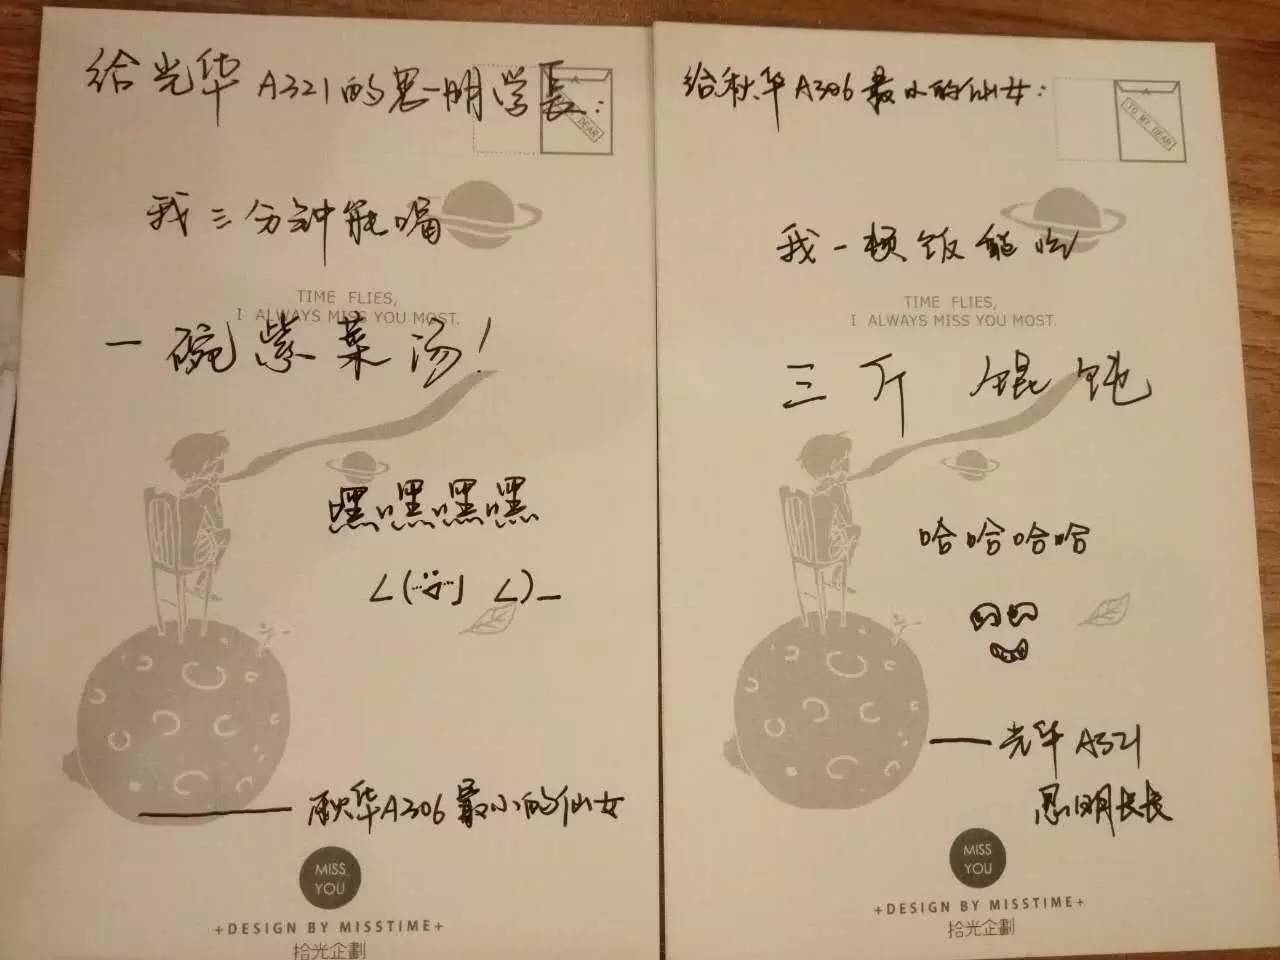 给光华A321的思明学長：
DEAR
我三分钟能喝
TIME FLIES,
I ALWAYS MISS YOU MOST.
一碗紫菜汤！
嘿嘿嘿嘿
——秋华A306最小的仙女
MISS
YOU
+DESIGN BY MISSTIME+
拾光企劃
给秋华A306最小的仙女：
TO MY DEAR
我一顿饭能吃
TIME FLIES,
I ALWAYS MISS YOU MOST.
三斤 馄饨
哈哈哈哈
——光华A321
思明长长
MISS
YOU
+DESIGN BY MISSTIME+
拾光企劃